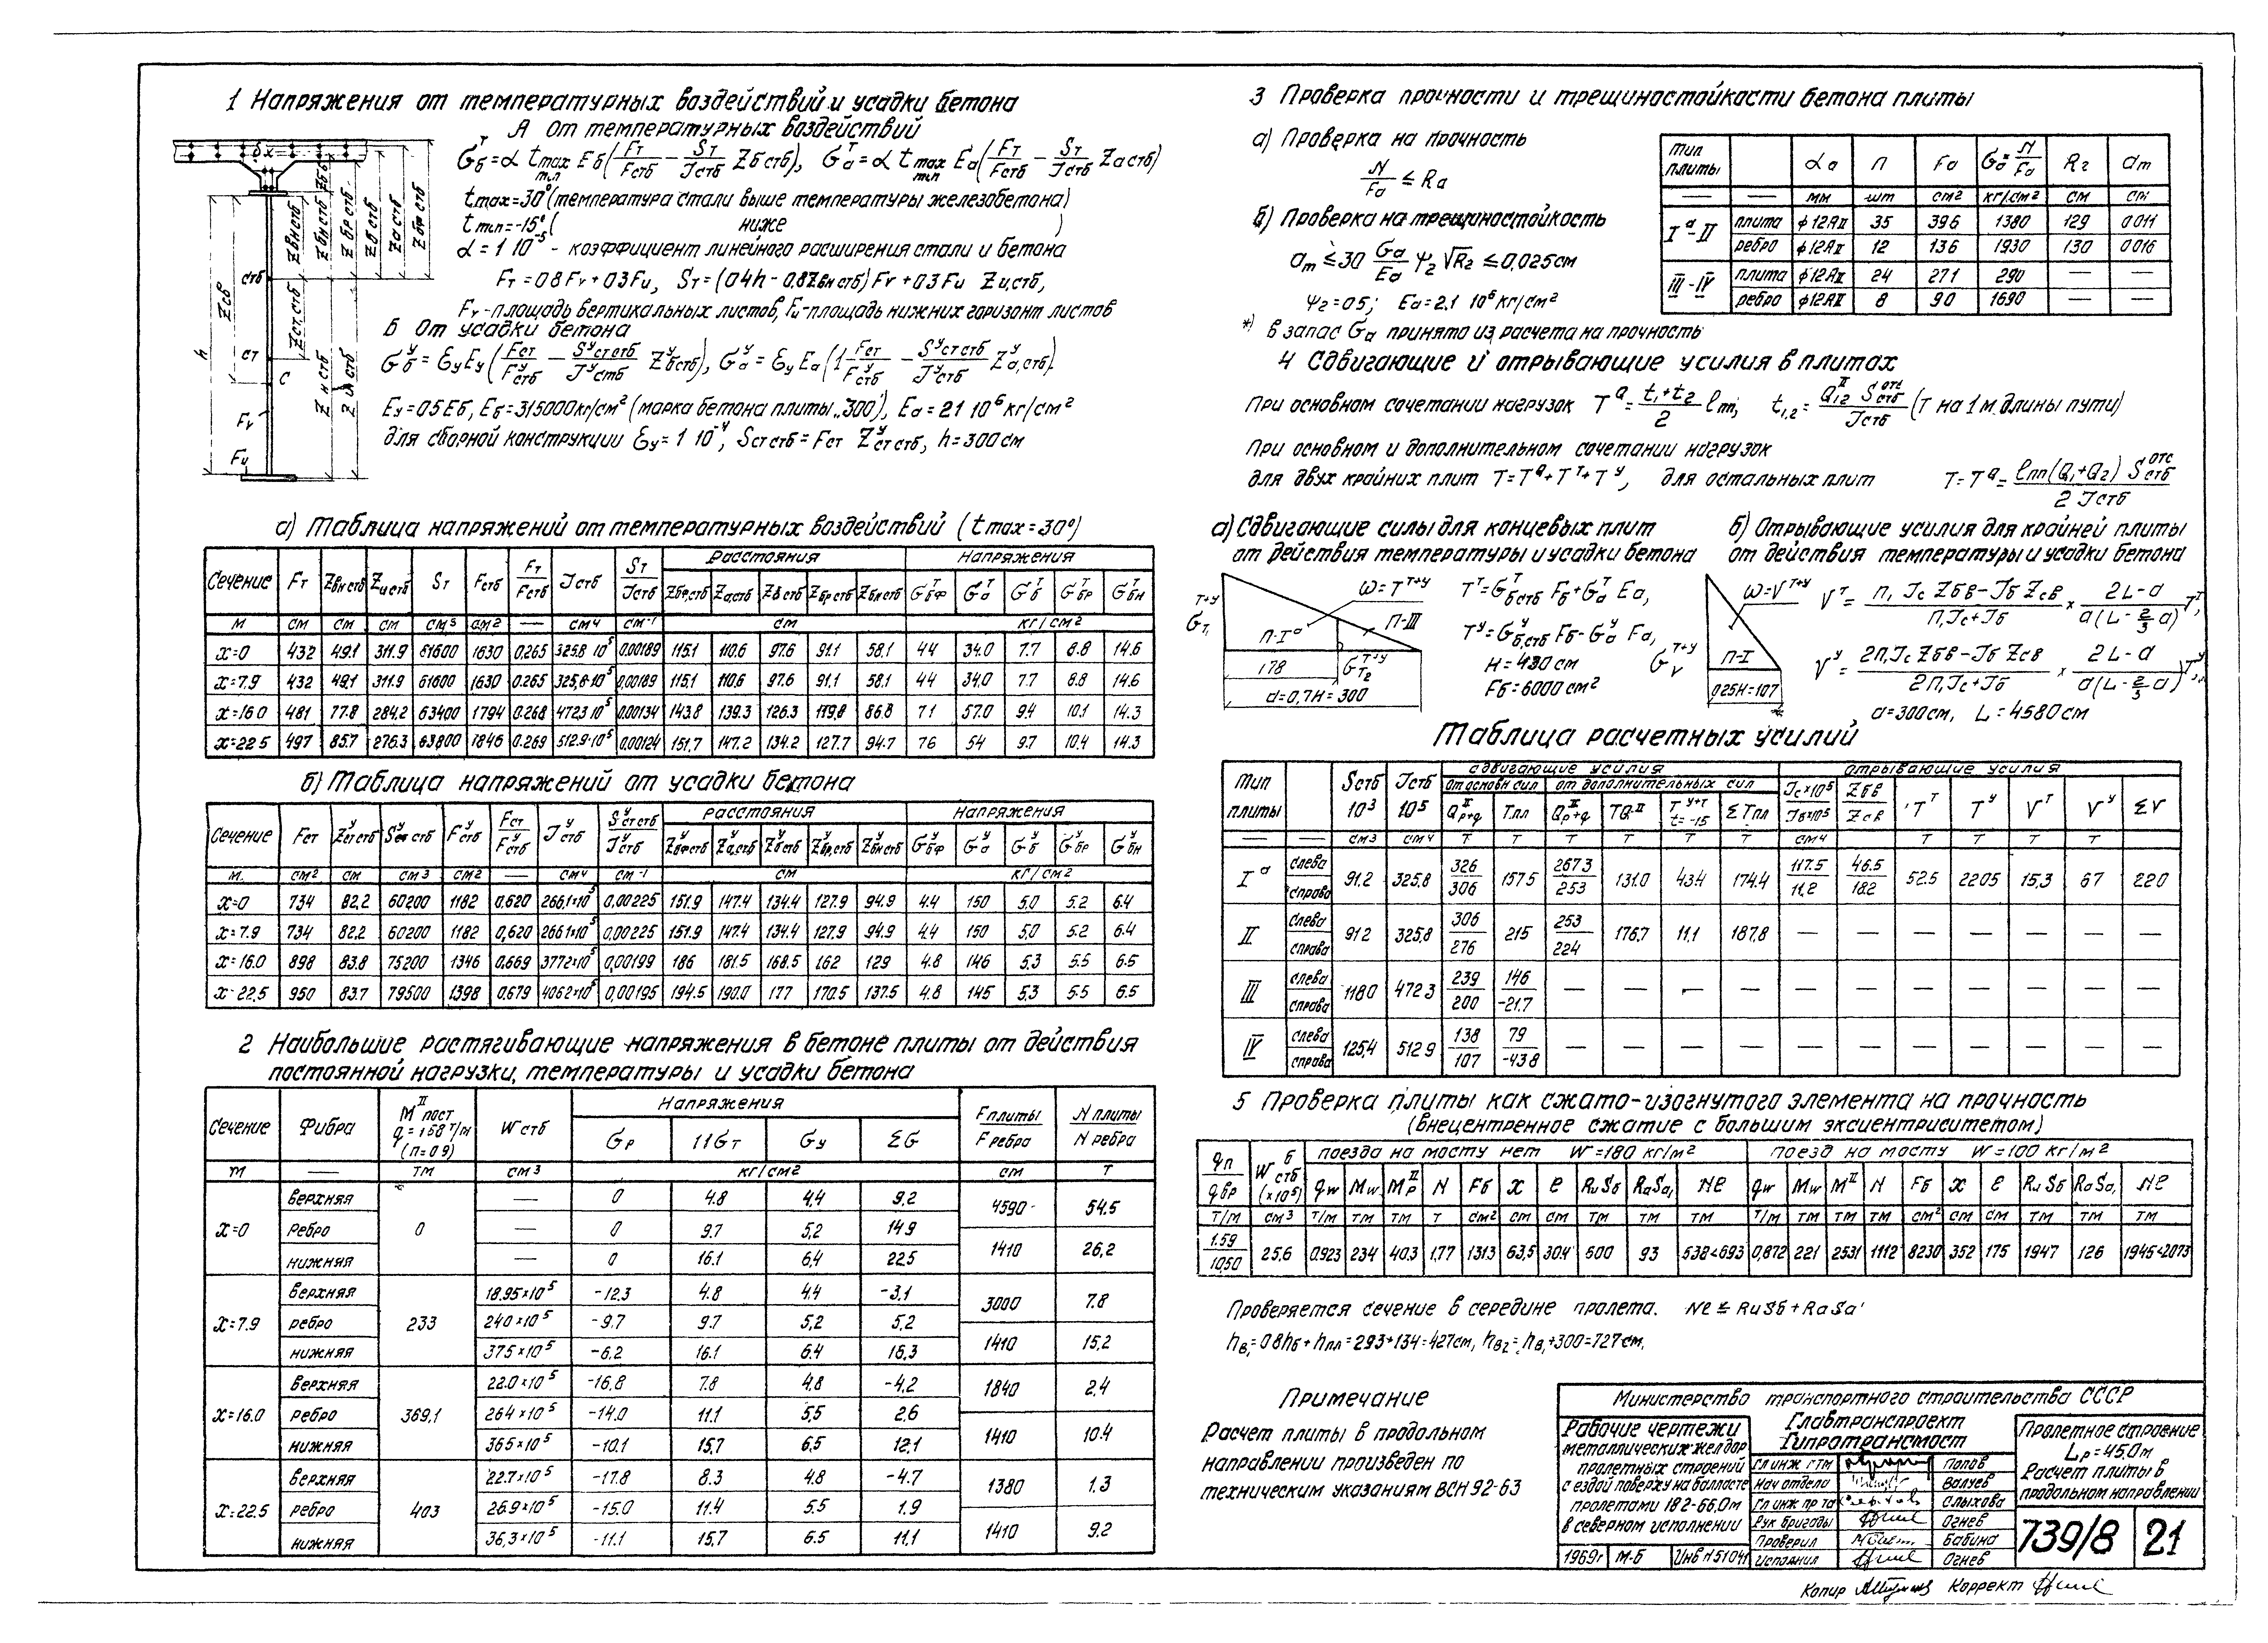 1 Напряжения от температурных воздействий и усадки бетона
А От температурных воздействий
tmax=30° (температура стали выше температуры железобетона)
tmin=-15° ( ниже )
α = 1 10⁻⁵ - коэффициент линейного расширения стали и бетона
Fт = 0.8 Fv + 0.3 Fи, Sт = (0.4h - 0.8Zвн стб) Fv + 0.3 Fи Zи,стб,
Fv - площадь вертикальных листов, Fи - площадь нижних горизонт листов
Б От усадки бетона
Eу = 0.5 Eб, Eб = 315000 кг/см² (марка бетона плиты „300"), Eа = 2.1 10⁶ кг/см²
для сборной конструкции εу = 1 10⁻⁴, Sст стб = Fст Zʸст стб, h = 300 см
а) Таблица напряжений от температурных воздействий (tmax = 30°)
Сечение Fт Zбн стб Zи стб Sт Fстб Fт/Fстб Jстб Sт/Jстб Расстояния Напряжения
м см см см см³ см² — см⁴ см⁻¹ см кг/см²
x=0 432 49.1 311.9 61600 1630 0.265 325.8 10⁵ 0.00189 115.1 110.6 97.6 91.1 58.1 44 34.0 7.7 8.8 14.6
x=7.9 432 49.1 311.9 61600 1630 0.265 325,8·10⁵ 0,00189 115,1 110,6 97.6 91,1 58.1 44 34.0 7.7 8.8 14.6
x=16.0 481 77.8 284.2 63400 1794 0.268 472,3 10⁵ 0.00134 143.8 139.3 126.3 119,8 86.8 7.1 57.0 9.4 10.1 14.3
x=22 5 497 85.7 276.3 63800 1846 0.269 512.9·10⁵ 0.00124 151.7 147.2 134.2 127.7 94.7 7.6 54 9.7 10.4 14.3
б) Таблица напряжений от усадки бетона
Сечение Fст Zʸст стб Sʸст стб Fʸстб Fст/Fʸстб Jʸстб Sʸст стб/Jʸстб Расстояния Напряжения
м. см² см см³ см² — см⁴ см⁻¹ см кг/см²
x=0 734 82,2 60200 1182 0,620 266,1×10⁵ 0,00225 151.9 147.4 134.4 127.9 94.9 4.4 150 5.0 5.2 6.4
x=7.9 734 82.2 60200 1182 0,620 266 1×10⁵ 0,00225 151.9 147.4 134.4 127.9 94.9 4.4 150 5,0 5.2 6.4
x=16.0 898 83,8 75200 1346 0.669 377.2×10⁵ 0,00199 186 181.5 168.5 162 129 4.8 146 5.3 5.5 6.5
x-22,5 950 83.7 79500 1398 0,679 406 2×10⁵ 0,00195 194.5 190.0 177 170.5 137.5 4.8 145 5,3 5.5 6.5
2 Наибольшие растягивающие напряжения в бетоне плиты от действия
постоянной нагрузки, температуры и усадки бетона
Сечение Фибра Mᴵᴵ пост q=1.68 т/м (п=0 9) Wстб Напряжения Fплиты/Fребра Nплиты/Nребра
σр 1 1σт σу Σσ
м — тм см³ кг/см² см т
x=0 0 4590 54.5 1410 26,2
верхняя — 0 4.8 4,4 9,2
ребро — 0 9.7 5,2 14.9
нижняя — 0 16.1 6,4 22,5
x=7.9 233 3000 7.8 1410 15,2
верхняя 18.95×10⁵ -12.3 4.8 4.4 -3.1
ребро 24 0×10⁵ -9.7 9.7 5,2 5,2
нижняя 37 5×10⁵ -6.2 16.1 6.4 16,3
x=16.0 369,1 1840 2.4 1410 10.4
верхняя 22.0×10⁵ -16,8 7.8 4,8 -4,2
ребро 26 4×10⁵ -14.0 11.1 5,5 2.6
нижняя 36 5×10⁵ -10.1 15,7 6,5 12,1
x=22.5 403 1380 1.3 1410 9.2
верхняя 22.7×10⁵ -17.8 8.3 4.8 -4.7
ребро 26.9×10⁵ -15.0 11.4 5.5 1.9
нижняя 36,3×10⁵ -11.1 15,7 6.5 11,1
3 Проверка прочности и трещиностойкости бетона плиты
а) Проверка на прочность
N/Fа ≤ Rа
б) Проверка на трещиностойкость
aт ≤ 30 σа/Eа ψ₂ √Rг ≤ 0,025 см
ψ₂ = 0 5; Eа = 2.1 10⁶ кг/см²
*) В запас σа принято из расчета на прочность
Тип плиты da п Fа σа=N/Fа Rг aт
— — мм шт см² кг/см² см см
Iᵃ-II плита ф12АII 35 39 6 1380 129 0 011
ребро ф12АII 12 13 6 1930 130 0 016
III-IV плита ф12АII 24 27 1 290 — —
ребро ф12АII 8 9 0 1690 — —
4 Сдвигающие и отрывающие усилия в плитах
При основном сочетании нагрузок Tᵠ = (t₁+t₂)/2 lпл; t₁,₂ = Qᴵᴵ₁,₂ Sᵒᵗᶜстб/Jстб (т на 1 м длины пути)
При основном и дополнительном сочетании нагрузок
для двух крайних плит T=Tᵠ+Tᵀ+Tʸ, для остальных плит T=Tᵠ= lпл(Q₁+Q₂) Sᵒᵗᶜстб / 2 Jстб
а) Сдвигающие силы для концевых плит
от действия температуры и усадки бетона
ω = Tᵀ⁺ʸ
П-Iᵃ
П-III
178
a=0,7H = 300
H = 430 см
Fб = 6000 см²
б) Отрывающие усилия для крайней плиты
от действия температуры и усадки бетона
ω=Vᵀ⁺ʸ
П-I
0.25H=107
a = 300 см, L = 4580 см
Таблица расчетных усилий
Тип плиты Sстб 10³ Jстб 10⁵ сдвигающие усилия отрывающие усилия
от основн сил от дополнительных сил
— — см³ см⁴ т т т т т т см⁴ т т т т т
Iᵃ слева справа 91.2 325,8 326/306 157 5 267 3/253 131.0 43.4 174.4 117.5/11,2 46.5/182 52.5 220 5 15,3 67 22 0
II слева справа 91 2 325,8 306/276 215 253/224 176.7 11,1 187,8 — — — — — — —
III слева справа 118 0 472 3 239/200 146/-21.7 — — — — — — — — — — —
IV слева справа 125,4 512 9 138/107 79/-43 8 — — — — — — — — — — —
5 Проверка плиты как сжато-изогнутого элемента на прочность
(внецентренное сжатие с большим эксцентриситетом)
qп/qвр Wᵇстб (×10⁵) поезда на мосту нет W=180 кг/м² поезд на мосту W=100 кг/м²
qw Mw Mᴵᴵр N Fб x e RиSб RаSа, Ne qw Mw Mᴵᴵ N Fб x e RиSб RаSа, Ne
т/м см³ т/м тм тм т см² см см тм тм тм т/м тм тм тм см² см см тм тм тм
1.59/10,50 25,6 0,923 234 40.3 1,77 1313 63,5 304 600 93 538<693 0,872 221 2531 1112 8230 352 175 1947 126 1945<2073
Проверяется сечение в середине пролета. Ne ≤ RиSб + RаSа'
hв₁=0.8hб+hпл=293+134=427см, hв₂=hв₁+300=727см,
Примечание
Расчет плиты в продольном
направлении произведен по
техническим указаниям ВСН 92-63
Министерство транспортного строительства СССР
Рабочие чертежи
металлических жел дор
пролетных строений
с ездой поверху на балласте
пролетами 18 2-66,0м
в северном исполнении
1969г М-б Инв N51041
Главтранспроект
Гипротрансмост
Гл инж ГТМ Попов
Нач отдела Валуев
Гл инж пр та Слыхова
Рук бригады Огнев
Проверил Бабина
Исполнил Огнев
Пролетное строение
Lр = 45.0м
Расчет плиты в
продольном направлении
739/8 21
Копир Коррект